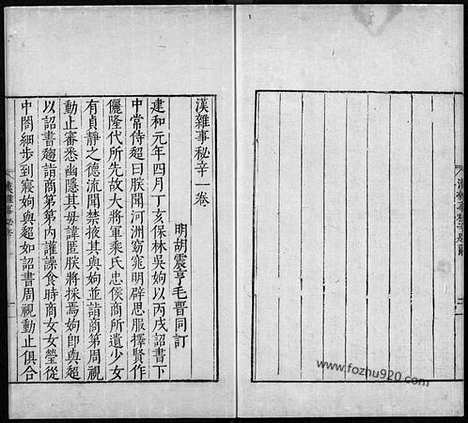 漢雜事秘辛一卷
明胡震亨毛晉同訂
建和元年四月丁亥保林吳姁以丙戌詔書下
中常侍超曰朕聞河洲窈窕明辟思服擇賢作
儷隆代所先故大將軍乘氏忠侯商所遺少女
有貞靜之德流聞禁掖其與姁並詣商第周視
動止審悉幽隱其毋諱匿朕將採焉姁即與超
以詔書趨詣商第第内讙譟食時商女女瑩從
中閤細步到寢姁與超如詔書周視動止俱合
www.fozhu920.com